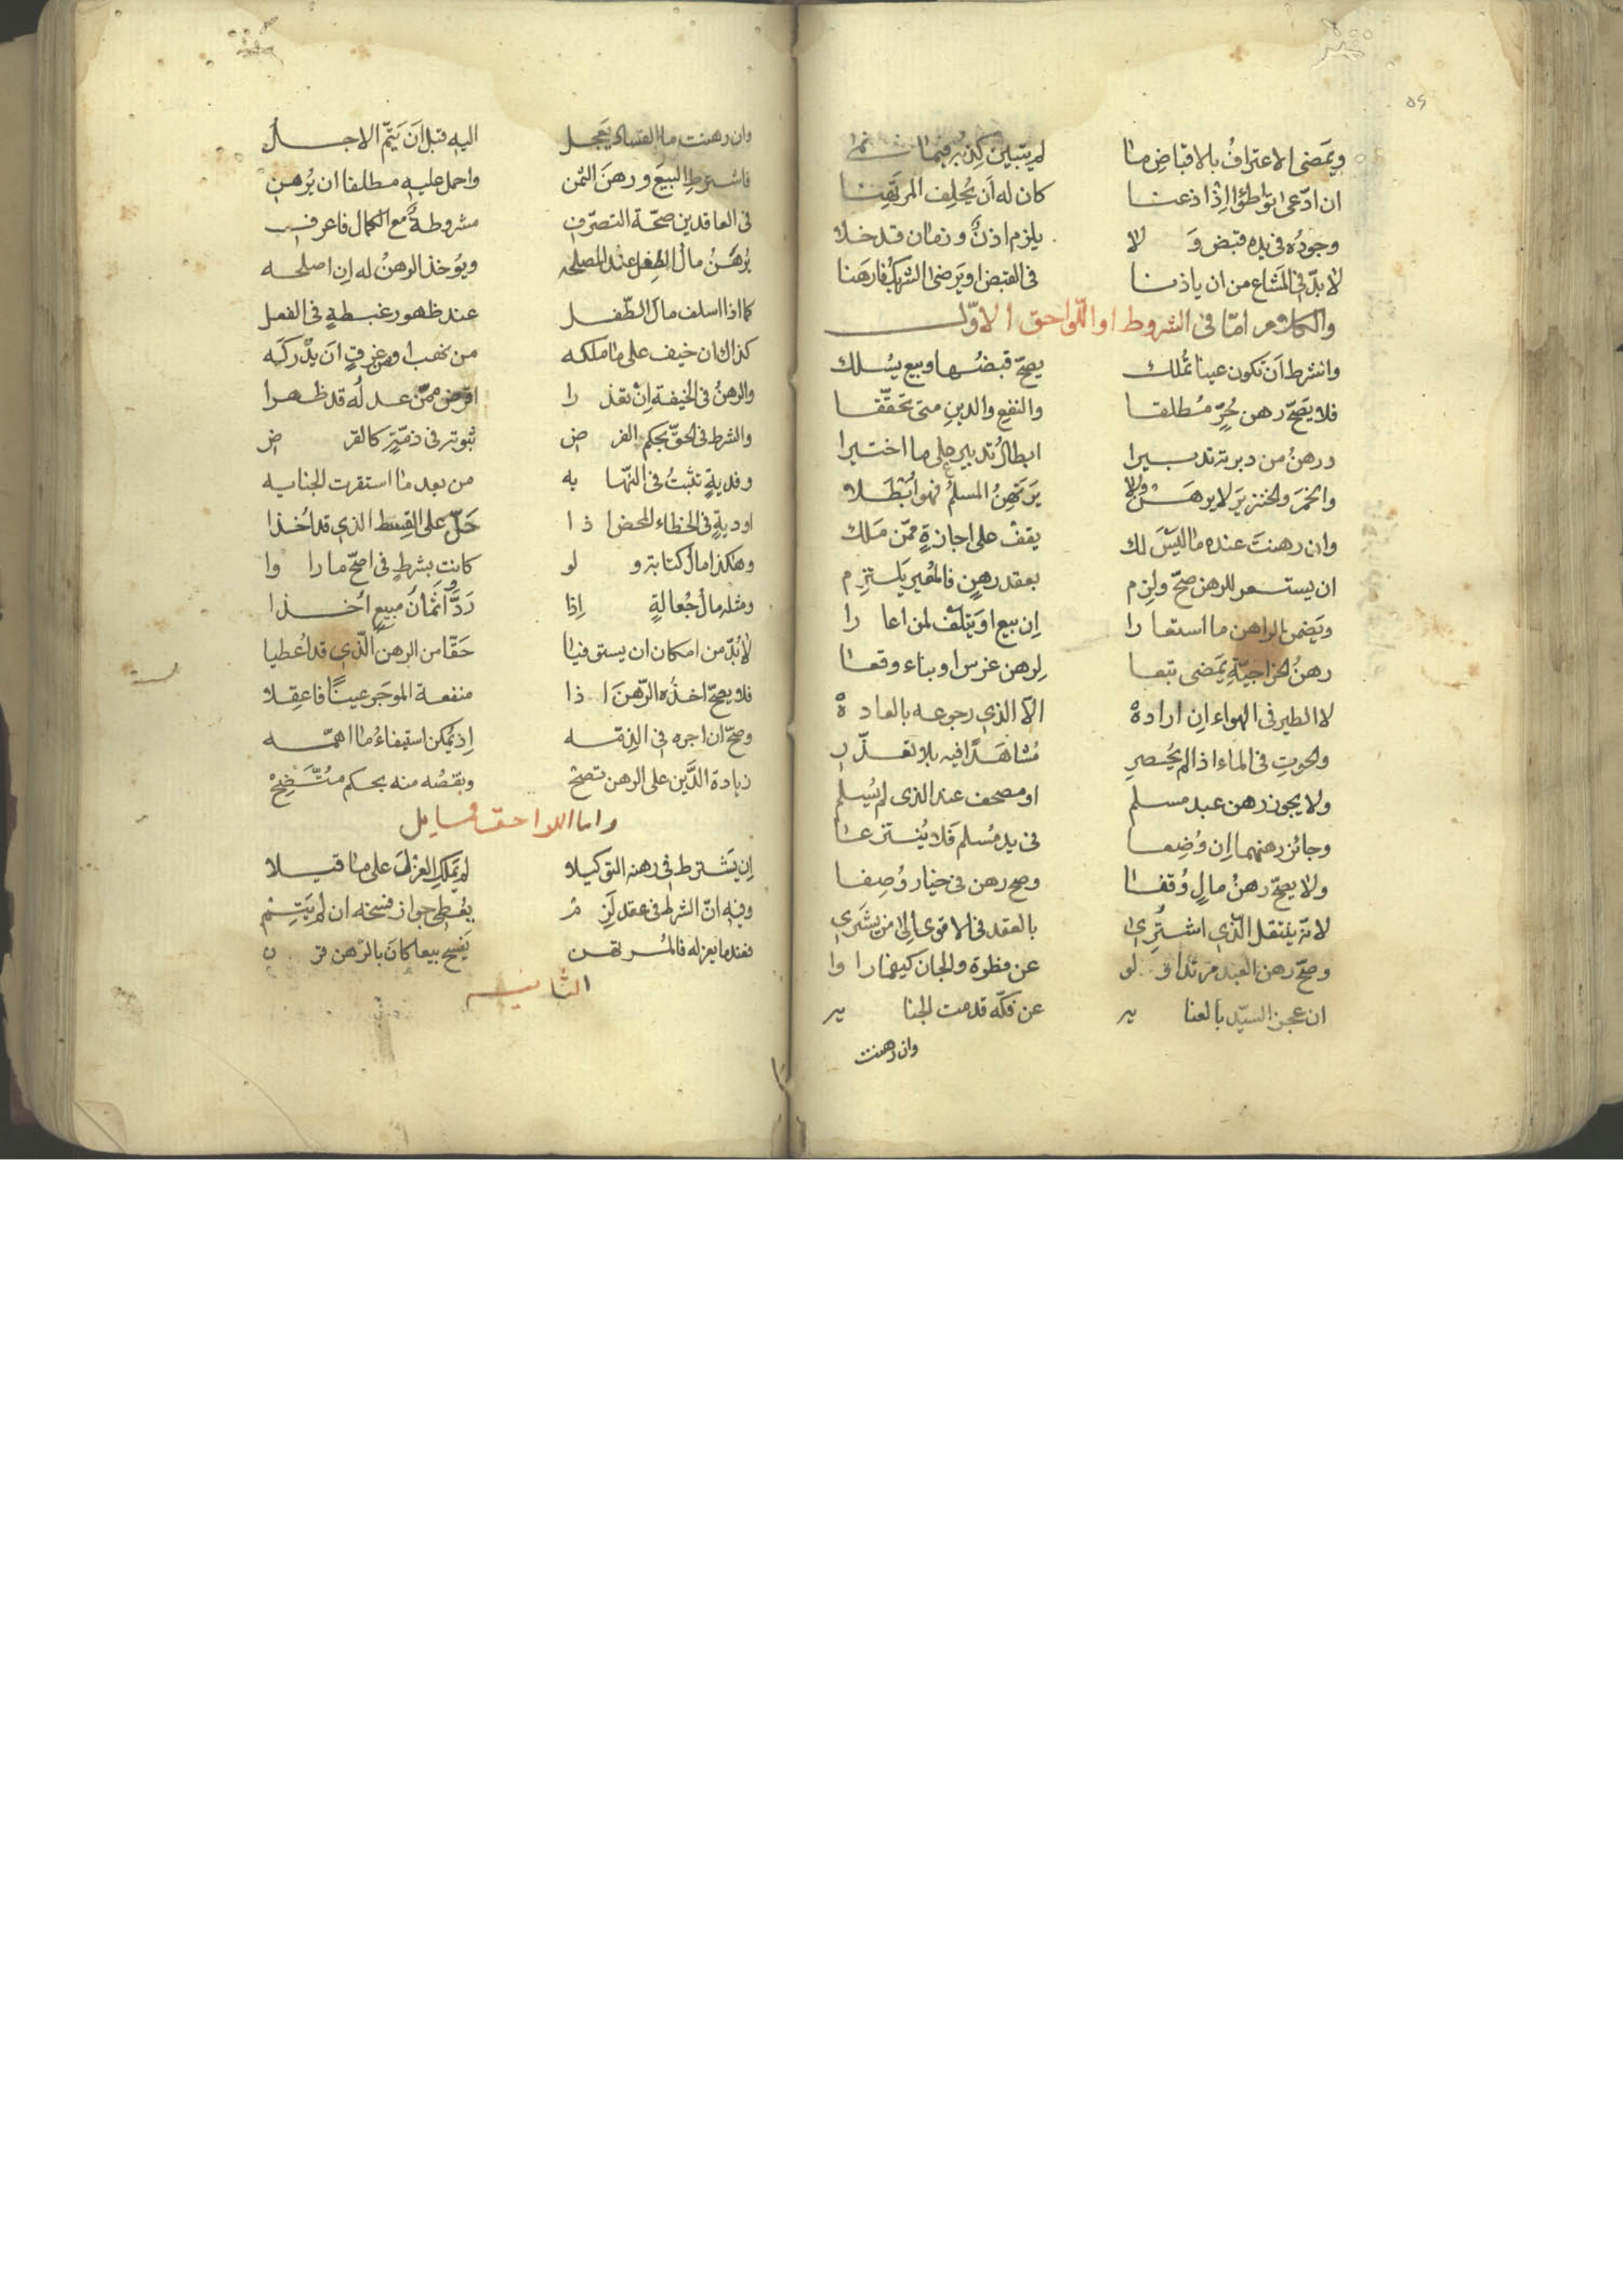 ٥٩
ويمضى الاعتراف بالاقباض ما لم يتبين كذبه فيما
ان ادّعى تواطؤا اذا ذعنا كان له أن يُحلِف المرتهنا
وجودُه فى يده قبض وَلا يلزم اذنٌ وزمان قد خلا
لا بدّ فى المشاع من ان ياذنا فى القبض او يرضى الشريك فارهنا
والكلام امّا فى الشروط او اللّواحق الاوّل
واشترط أن تكون عينا تُملك يصحّ قبضُها وبيع يُسلك
فلا يصحّ رهن حُرّ مُطلقا والنفع والدين متى تحقّقا
ورهنُ من دبرته تدبيرا ابطالُ تدبير على ما اختيرا
والخمرَ والخنزيرَ لا يرهن ولا يَرتهِنُ المسلمُ فهو ابطلا
وان رهنتَ عنده ما ليسَ لك يقف على اجازةٍ ممّن مَلك
ان يستعر للرهن صحّ ولزم بعقد رهنٍ فالمُعير يلتزم
ويَضمن الراهن ما استعارا اِن بيع او يتلف لمن اعارا
رهنُ الخراجيّةِ يَمضى تبعا لِرهن غرس او بناء وقعا
لا الطير فى الهواء اِن اراده الّا الذى رجوعه بالعاده
والحوتِ فى الماء اذا لم يُحصرِ مُشاهَدًا فيه بلا تعذّر
ولا يجوز رهن عبد مسلم او مصحف عند الذى لم يُسلم
وجائز رهنهما اِن وُضِعا فى يد مُسلم فَلا يُنتزعا
ولا يصحّ رهنُ مالٍ وُقفا وصح رهن فى خيار وُصِفا
لانّه ينتقل الّذى اشتُرِى بالعقد فى الاقوى اِلى من يشترى
وصحّ رهن العبد مرتدا ولو عن فطرة والجان كيفما راوا
ان عجز السيّد بالعنايه عن فكّه قدمت الجنايه
وان رهنت
وان رهنت ما الفساد يَعجل اليه قبل اَن يَتمّ الاجل
فاشترطِ البيعَ ورهنَ الثمن واحمل عليه مطلقا ان يُرهن
فى العاقدين صحّة التصرّف مشروطةٌ مع الكمال فاعرف
يُرهَنُ مال الطِفل عند المصلحه ويُوخذ الرهنُ له اِن اصلحه
كما اذا اسلف مال الطّفل عند ظهور غبطةٍ فى الفعل
كذاك ان خيف على ما ملكه من نهب او من غرقٍ ان يدْركَه
والرهنُ فى الخيفة اِن تعذرا اقرض ممّن عدله قد ظهرا
والشرط فى الحقّ بحكم الفرض ثبوته فى ذمّةٍ كالقرض
وفديةٍ تثبتُ فى النّهايه من بعد ما استقرت الجنايه
او ديةٍ فى الخطاء المحض اذا حَلّ على القِسط الذى قد اُخذا
وهكذا مال كتابة ولو كانت بشرطٍ فى اصحّ ما راوا
ومثله مال جُعالةٍ اِذا رَدَّ وأثمانُ مبيعٍ اُخذا
لا بُدّ من امكان ان يستوفيا حَقّا من الرهن الّذى قد اُعطيا
فلا يصحّ اخذُه الرّهنَ اذا منفعة الموجَر عينًا فاعقِلا
وصحّ ان اجره فى الذمّه اِذ يُمكن استيفاءُ ما اهمّه
زيادة الدَّين على الرهن تصحّ ونقصُه منه بحكم مُتّضِحْ
واما اللواحق فمسايل
اِن يَشترط فى رهنه التوكيلا لم يَملكِ العزلَ على ما قيلا
وفيه انّ الشرط فى عقد لزم يُعطى جواز فسخه ان لم يَتِم
فعندما يعزله فالمُرتهن يَفسخ بيعا كانَ بالرّهن قرن
الثانيه